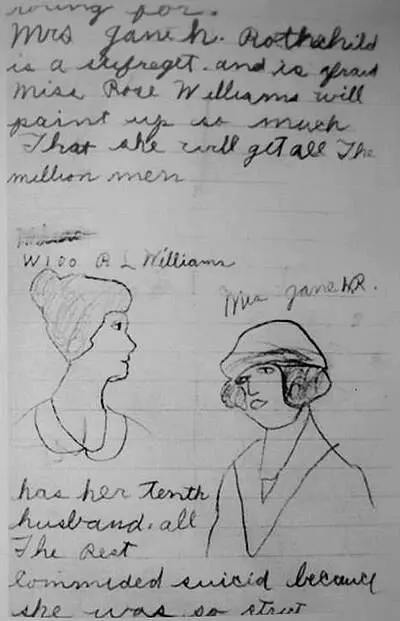 for.
Mrs Jane h. Rothchild
is a sufreget. and is afraid
Miss Rose Williams will
paint up so much
That she will get all The
million men
W100 R L Williams
Mrs Jane h R.
has her tenth
husband. all
The Rest
Commided suicid because
she was so